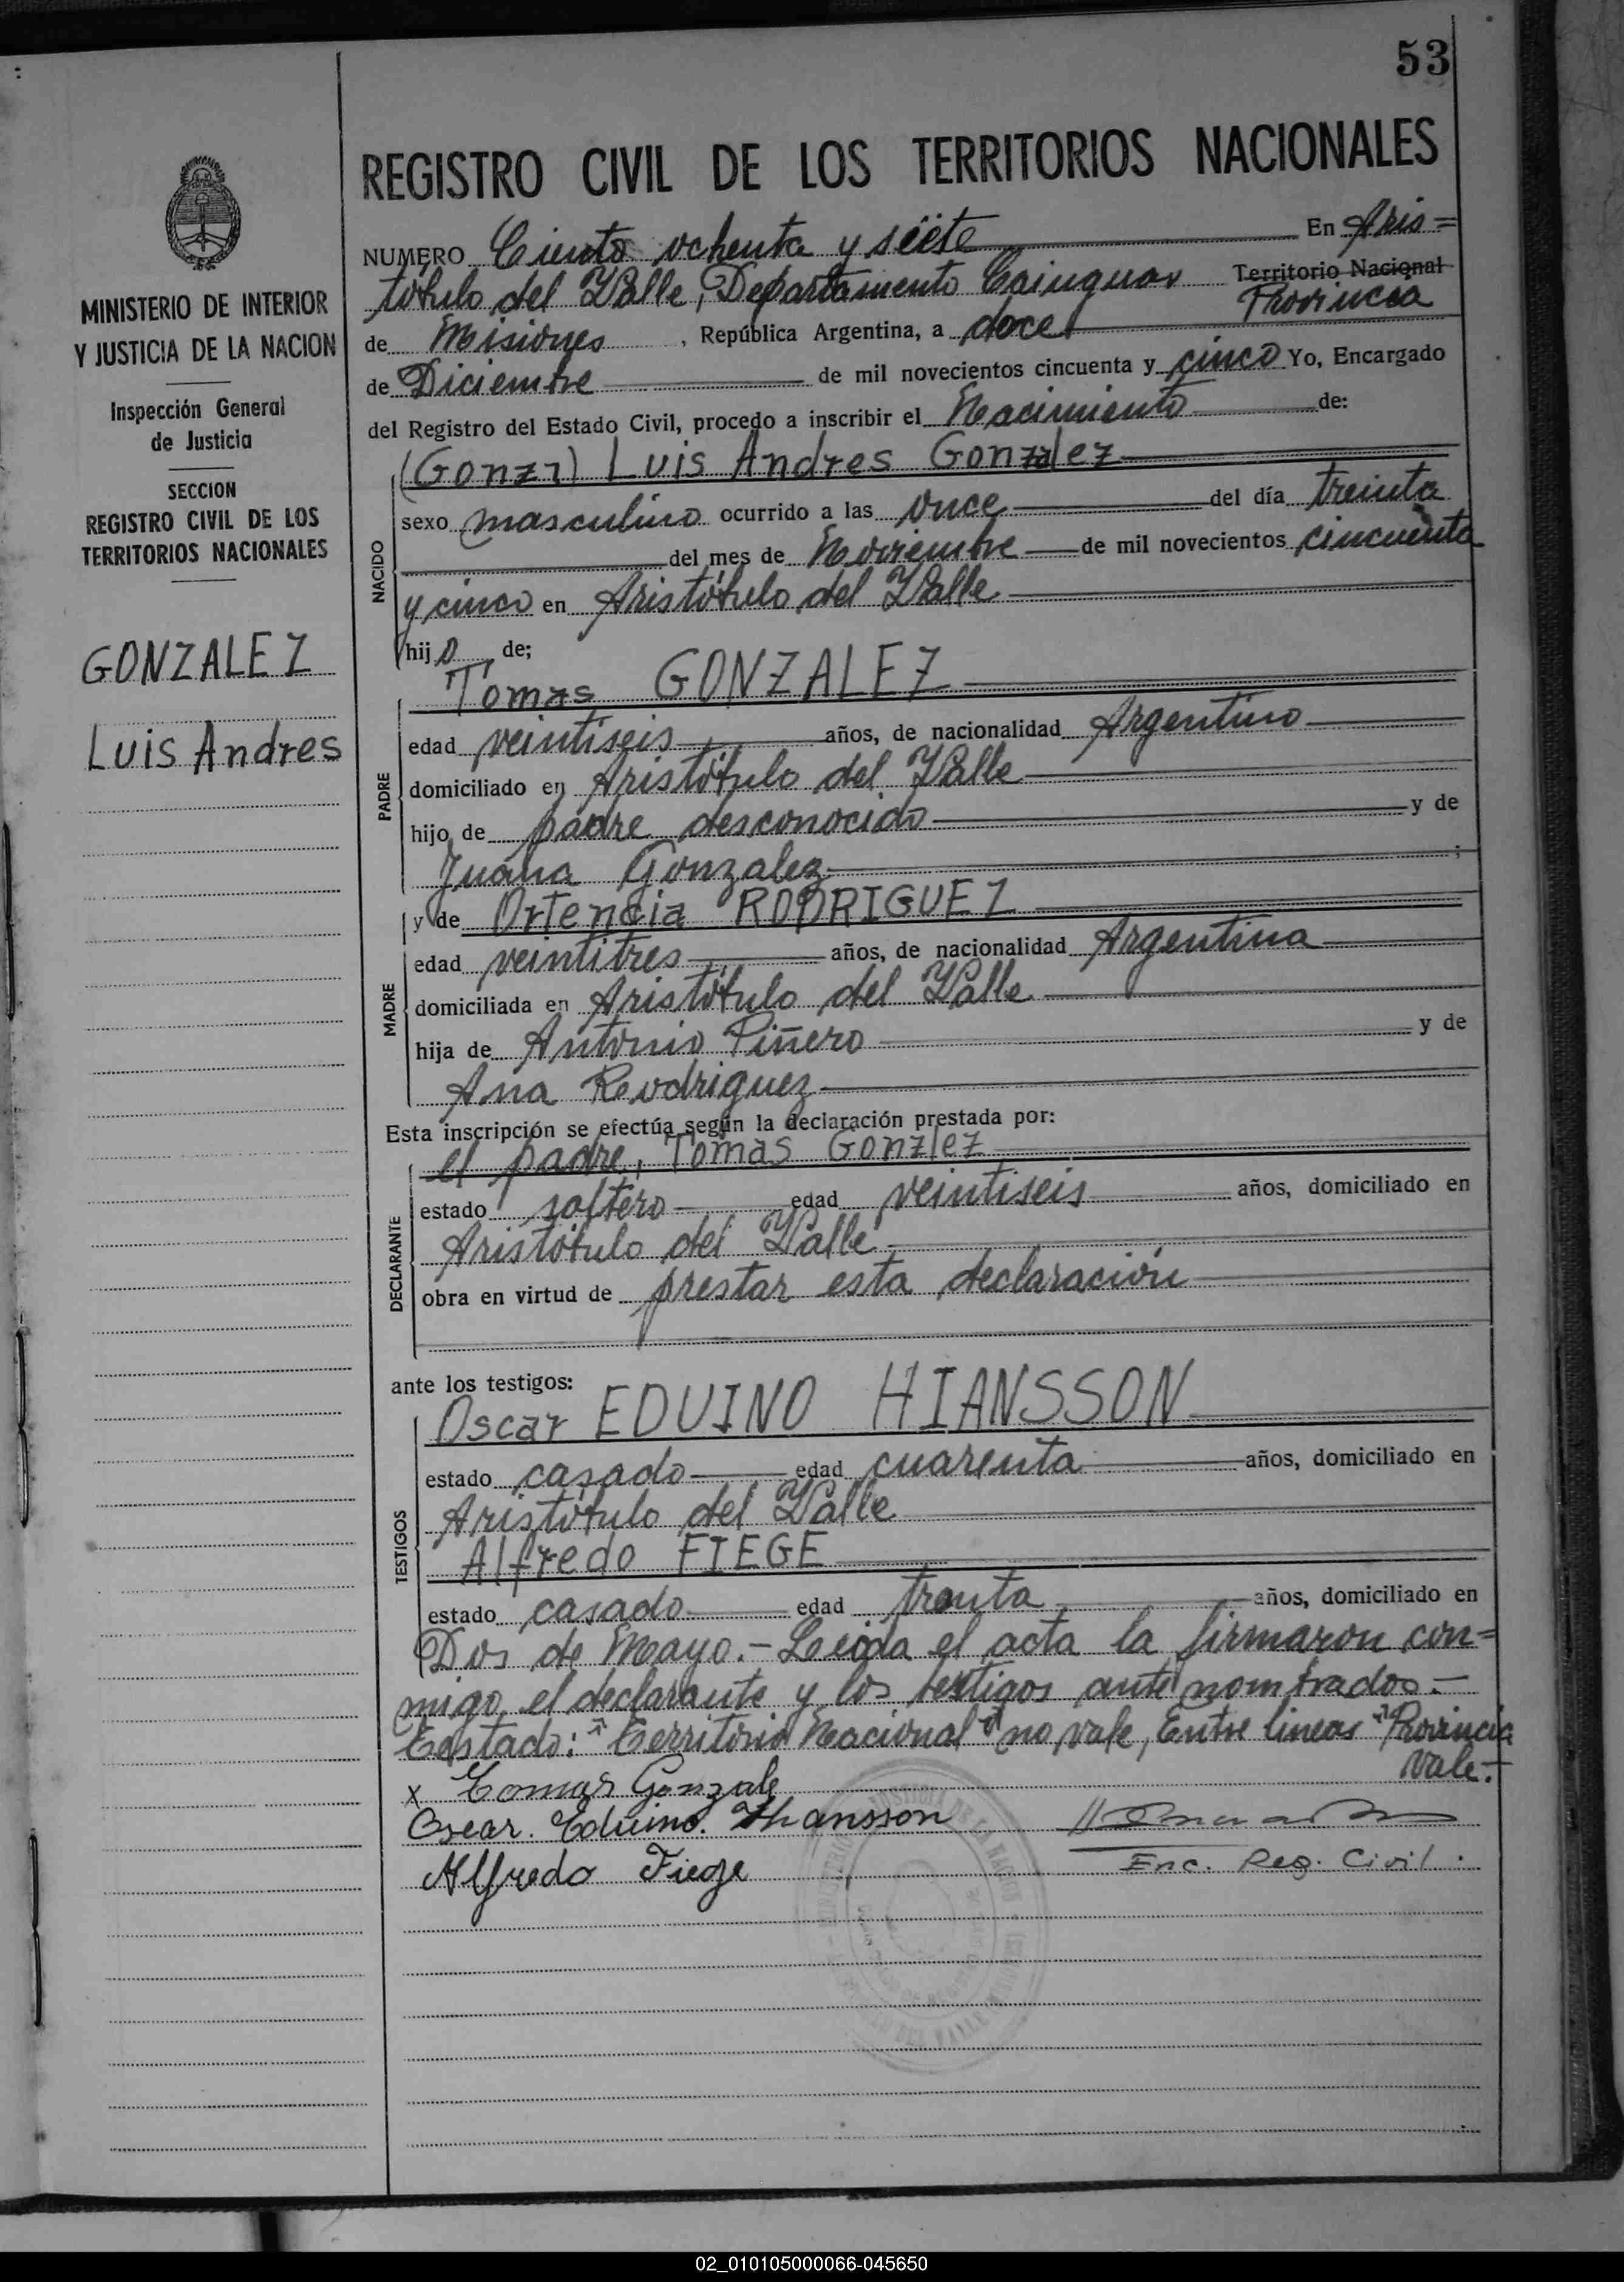 53
REGISTRO CIVIL DE LOS TERRITORIOS NACIONALES
MINISTERIO DE INTERIOR
Y JUSTICIA DE LA NACION
Inspección General
de Justicia
SECCION
REGISTRO CIVIL DE LOS
TERRITORIOS NACIONALES
GONZALEZ
Luis Andres
NUMERO Ciento ochenta y siete En Aris=
tóbulo del Valle, Departamento Cainguas Territorio Nacional
Provincia
de Misiones, República Argentina, a doce
de Diciembre de mil novecientos cincuenta y cinco Yo, Encargado
del Registro del Estado Civil, procedo a inscribir el Nacimiento de:
(Gonzz) Luis Andres Gonzalez
NACIDO
sexo masculino ocurrido a las once del día treinta
del mes de Noviembre de mil novecientos cincuenta
y cinco en Aristóbulo del Valle
hijo de;
Tomas GONZALEZ
PADRE
edad veintiseis años, de nacionalidad Argentino
domiciliado en Aristóbulo del Valle
hijo de padre desconocido y de
Juana Gonzalez ;
y de Ortencia RODRIGUEZ
MADRE
edad veintitres años, de nacionalidad Argentina
domiciliada en Aristóbulo del Valle
hija de Antonio Piñero y de
Ana Reodriguez
Esta inscripción se efectúa según la declaración prestada por:
el padre, Tomas Gonzlez
DECLARANTE
estado soltero edad veintiseis años, domiciliado en
Aristóbulo del Valle
obra en virtud de prestar esta declaración
ante los testigos:
Oscar EDUINO HIANSSON
TESTIGOS
estado casado edad cuarenta años, domiciliado en
Aristóbulo del Valle
Alfredo FIEGE
estado casado edad trenta años, domiciliado en
Dos de Mayo.- Leida el acta la firmaron con=
migo el declarante y los testigos ante nombrados.-
Testado: "Territorio Nacional" no vale, Entre lineas "Provincia
vale.-
x Tomas Gonzale
Oscar. Eduino. Hiansson
Enc. Reg. Civil.
Alfredo Fiege
02_010105000066-045650